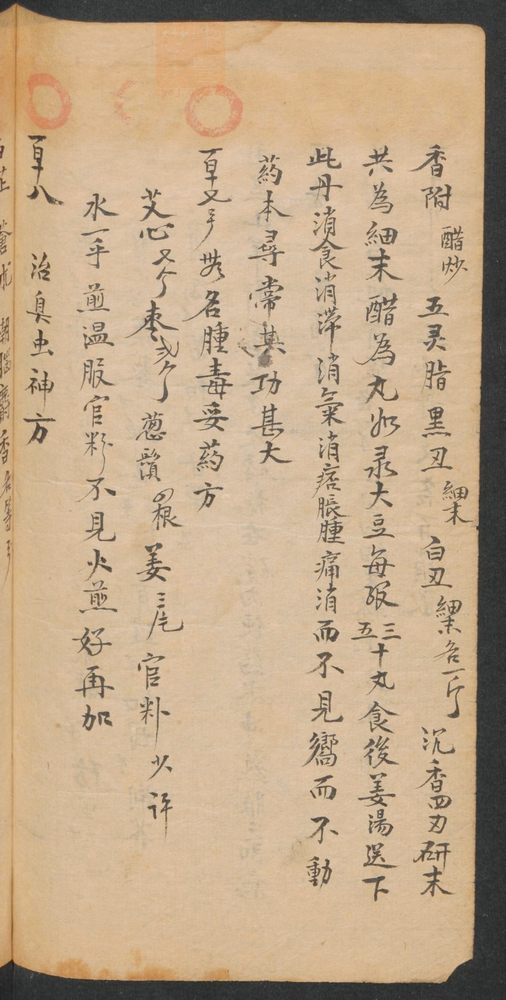 香附 醋炒 五灵脂 黑丑 細末 白丑 細末各一斤 沉香四刃研末
共為細末醋為丸如彔大豆每服三五十丸食後姜湯送下
此丹消食消滯消氣消痞脹腫痛消而不見嚮而不動
葯本尋常其功甚大
治各腫毒妥葯方
艾心 棗 葱鬚四根 姜三片 官料少許
水一 煎温服官料不見火煎好再加
百十八 治臭虫神方
白芷 蒼朮 香各等